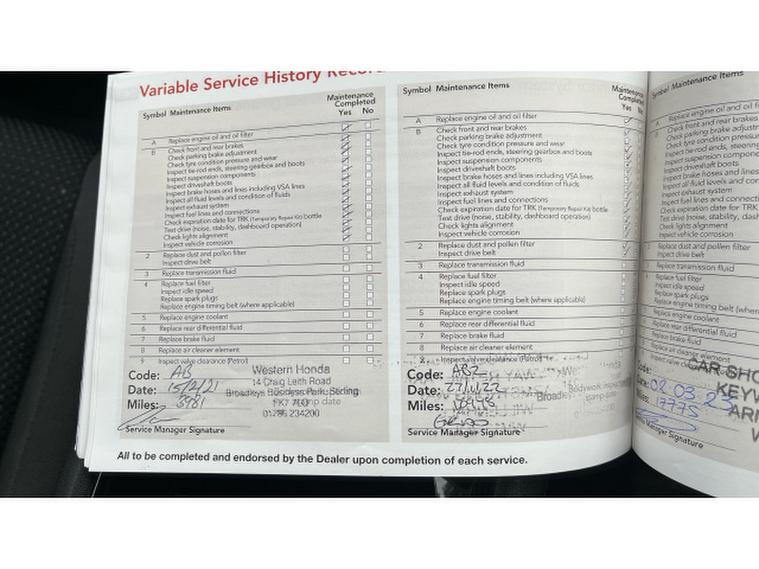 Variable Service History Record
Symbol Maintenance Items
Maintenance
Completed
Yes No
A Replace engine oil and oil filter
B Check front and rear brakes
Check parking brake adjustment
Check tyre condition pressure and wear
Inspect tie-rod ends, steering gearbox and boots
Inspect suspension components
Inspect driveshaft boots
Inspect brake hoses and lines including VSA lines
Inspect all fluid levels and condition of fluids
Inspect exhaust system
Inspect fuel lines and connections
Check expiration date for TRK (Temporary Repair Kit) bottle
Test drive (noise, stability, dashboard operation)
Check lights alignment
Inspect vehicle corrosion
2 Replace dust and pollen filter
Inspect drive belt
3 Replace transmission fluid
4 Replace fuel filter
Inspect idle speed
Replace spark plugs
Replace engine timing belt (where applicable)
5 Replace engine coolant
6 Replace rear differential fluid
7 Replace brake fluid
8 Replace air cleaner element
9 Inspect valve clearance (Petrol)
Code: AB
Date: 15/2/21
Miles: 3981
Western Honda
14 Craig Leith Road
Broadleys Business Park, Stirling
FK7 7LQ
01786 234200
Service Manager Signature
Symbol Maintenance Items
Maintenance
Completed
Yes No
A Replace engine oil and oil filter
B Check front and rear brakes
Check parking brake adjustment
Check tyre condition pressure and wear
Inspect tie-rod ends, steering gearbox and boots
Inspect suspension components
Inspect driveshaft boots
Inspect brake hoses and lines including VSA lines
Inspect all fluid levels and condition of fluids
Inspect exhaust system
Inspect fuel lines and connections
Check expiration date for TRK (Temporary Repair Kit) bottle
Test drive (noise, stability, dashboard operation)
Check lights alignment
Inspect vehicle corrosion
2 Replace dust and pollen filter
Inspect drive belt
3 Replace transmission fluid
4 Replace fuel filter
Inspect idle speed
Replace spark plugs
Replace engine timing belt (where applicable)
5 Replace engine coolant
6 Replace rear differential fluid
7 Replace brake fluid
8 Replace air cleaner element
9 Inspect valve clearance (Petrol)
Code: AB2
Date:
Miles:
Service Manager Signature
Symbol Maintenance Items
A Replace engine oil and oil
B Check front and rear brakes
Replace dust and pollen filter
Inspect drive belt
Replace transmission fluid
Replace fuel filter
Inspect idle speed
Replace spark plugs
Replace engine timing belt
Replace engine coolant
Replace rear differential fluid
Replace brake fluid
Replace air cleaner element
CAR SHO
KEYW
Date: 02.03.23
Miles: 17775
Manager Signature
All to be completed and endorsed by the Dealer upon completion of each service.